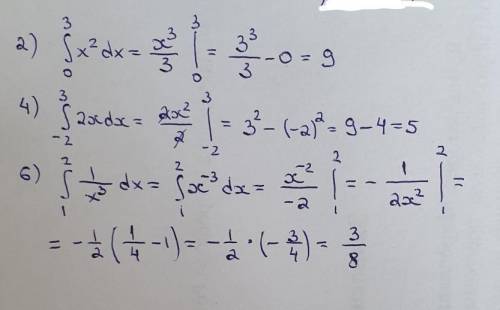 2) ∫₀³ x² dx = x³/3 |₀³ = 3³/3 - 0 = 9
4) ∫₋₂³ 2x dx = 2x²/2 |₋₂³ = 3² - (-2)² = 9 - 4 = 5
6) ∫₁² 1/x³ dx = ∫₁² x⁻³ dx = x⁻²/-2 |₁² = - 1/2x² |₁² =
= - 1/2 (1/4 - 1) = - 1/2 · (- 3/4) = 3/8